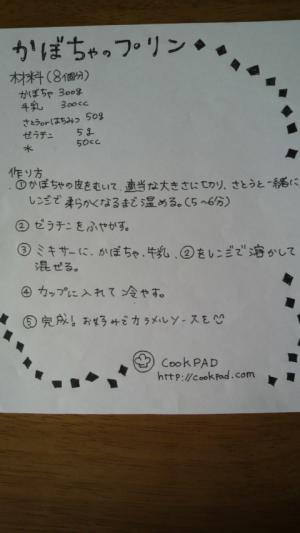 かぼちゃのプリン
材料(8個分)
かぼちゃ 300g
牛乳 300cc
さとうorはちみつ 50g
ゼラチン 5g
水 50cc
作り方
①かぼちゃの皮をむいて、適当な大きさに切り、さとうと一緒に
レンジで柔らかくなるまで温める。(5~6分)
②ゼラチンをふやかす。
③ミキサーに、かぼちゃ、牛乳、②をレンジで溶かして
混ぜる。
④カップに入れて冷やす。
⑤完成!お好みでカラメルソースを
COOKPAD
http://cookpad.com